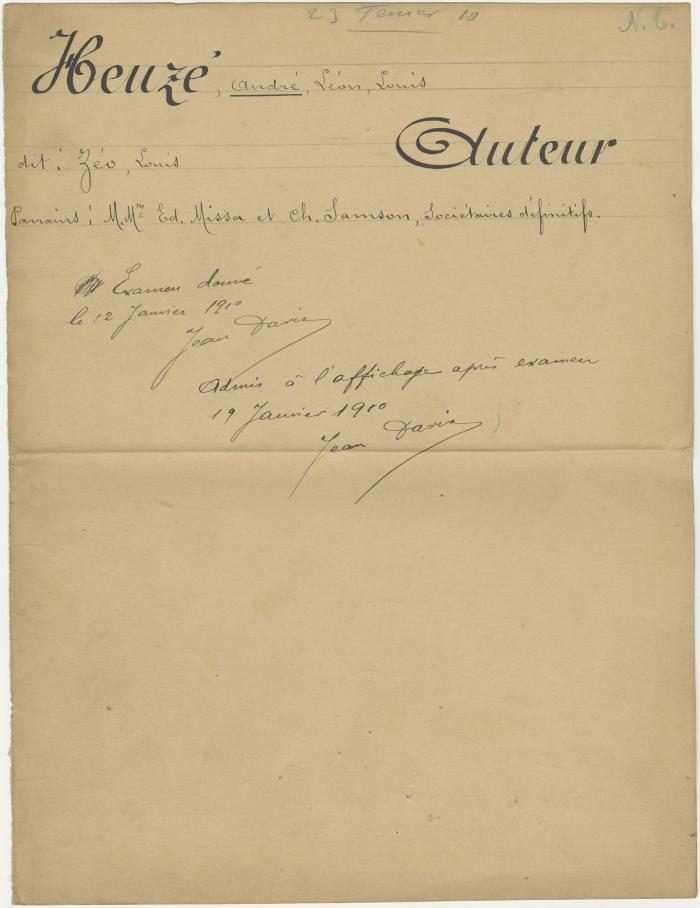 23 Fevrier 10
N. C.
Heuzé, André, Léon, Louis
Auteur
dit : Zéo, Louis
Parrains : M.Mrs Ed. Missa et Ch. Samson, Sociétaires définitifs.
Examen donné
le 12 Janvier 1910
Jean Davis
Admis à l'affichage après examen
19 Janvier 1910
Jean Davis